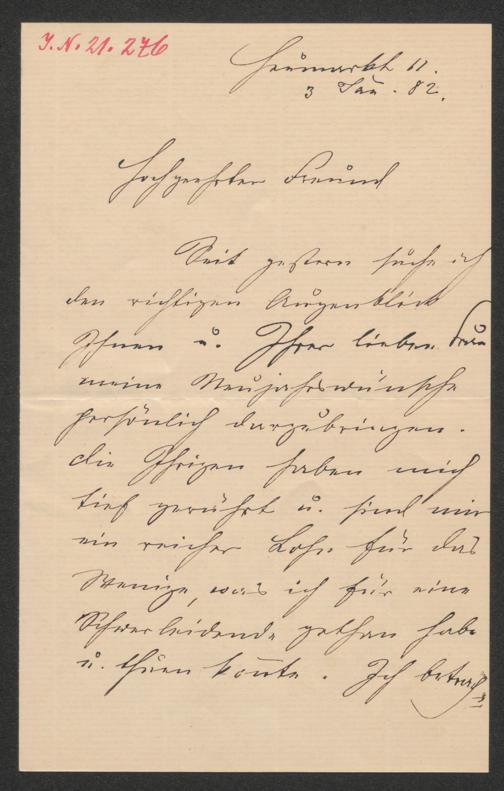 J. N. 21. 276
Heumarkt 11.
3 Jan. 82.
Hochgeehrter Freund
Seit gestern suche ich
den richtigen Augenblick
Ihnen u. Ihrer lieben Frau
meine Neujahrswünsche
persönlich darzubringen.
Die Ihrigen haben mich
tief gerührt u. sind mir
ein reicher Lohn für das
Wenige, was ich für eine
Schwerleidende gethan habe
u. thuen konnte. Ich betrach